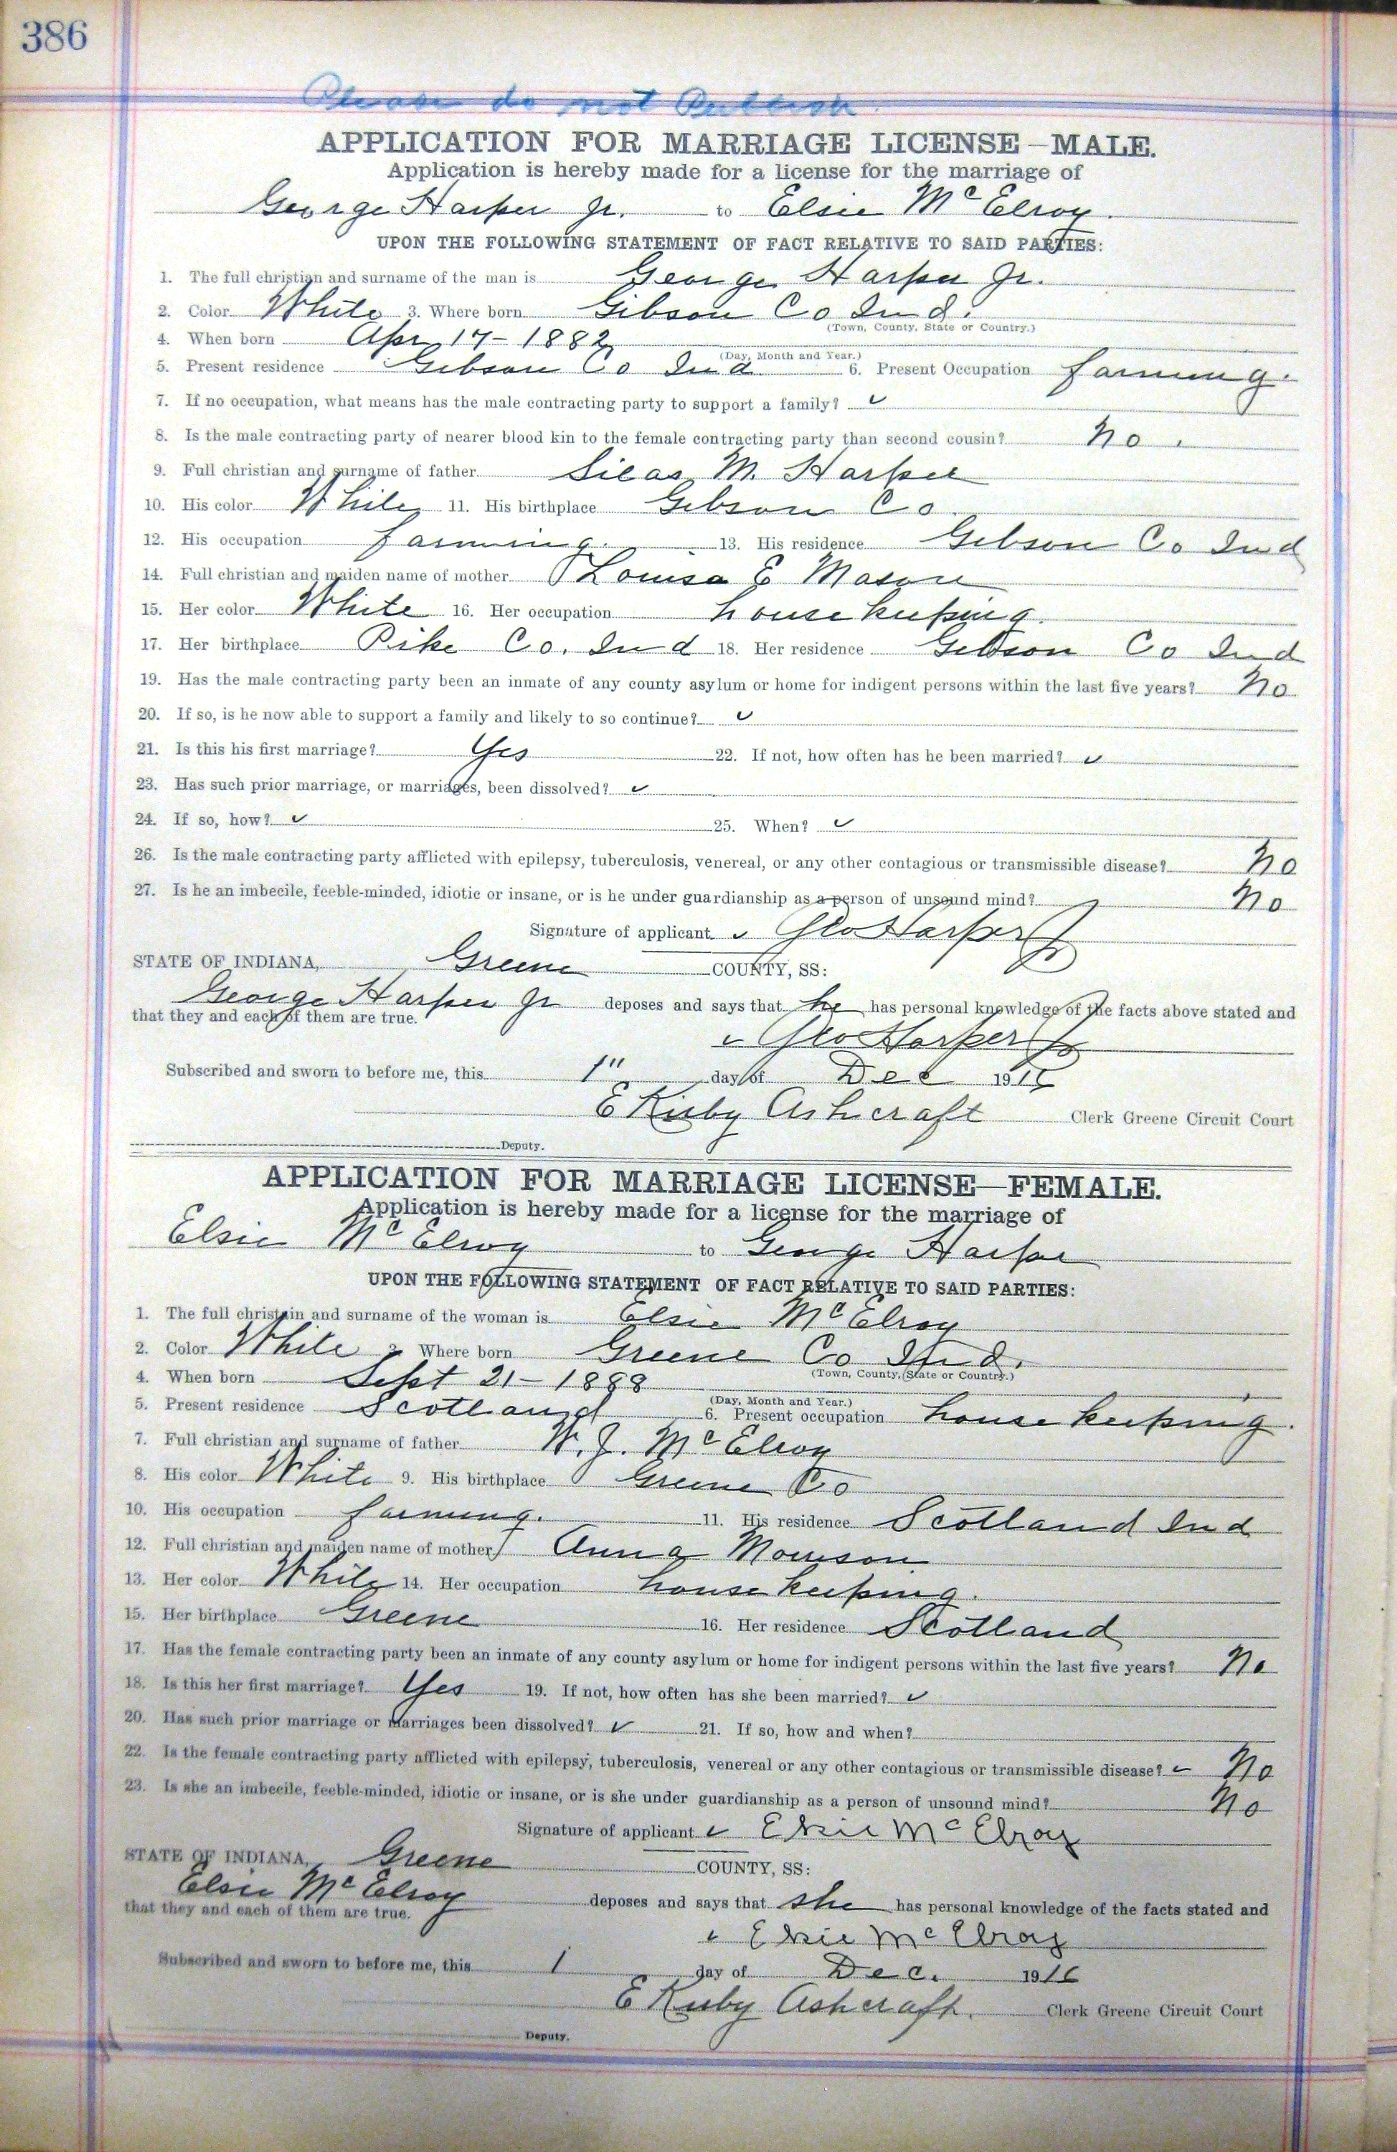 386
Please do not Publish.
APPLICATION FOR MARRIAGE LICENSE—MALE.
Application is hereby made for a license for the marriage of
George Harper Jr. to Elsie McElroy.
UPON THE FOLLOWING STATEMENT OF FACT RELATIVE TO SAID PARTIES:
1. The full christian and surname of the man is George Harper Jr.
2. Color White 3. Where born Gibson Co Ind.
(Town, County, State or Country.)
4. When born Apr 17 - 1882
(Day, Month and Year.)
5. Present residence Gibson Co Ind 6. Present Occupation farming.
7. If no occupation, what means has the male contracting party to support a family? ✓
8. Is the male contracting party of nearer blood kin to the female contracting party than second cousin? No.
9. Full christian and surname of father Silas M. Harper
10. His color White 11. His birthplace Gibson Co.
12. His occupation farming. 13. His residence Gibson Co Ind
14. Full christian and maiden name of mother Louisa E Mason
15. Her color White 16. Her occupation housekeeping.
17. Her birthplace Pike Co. Ind 18. Her residence Gibson Co Ind
19. Has the male contracting party been an inmate of any county asylum or home for indigent persons within the last five years? No
20. If so, is he now able to support a family and likely to so continue? ✓
21. Is this his first marriage? Yes 22. If not, how often has he been married? ✓
23. Has such prior marriage, or marriages, been dissolved? ✓
24. If so, how? ✓ 25. When? ✓
26. Is the male contracting party afflicted with epilepsy, tuberculosis, venereal, or any other contagious or transmissible disease? No
27. Is he an imbecile, feeble-minded, idiotic or insane, or is he under guardianship as a person of unsound mind? No
Signature of applicant ✓ Geo Harper Jr
STATE OF INDIANA, Greene COUNTY, SS:
George Harper Jr deposes and says that he has personal knowledge of the facts above stated and
that they and each of them are true.
✓ Geo Harper Jr
Subscribed and sworn to before me, this 1" day of Dec 1916
E Kirby Ashcraft Clerk Greene Circuit Court
Deputy.
APPLICATION FOR MARRIAGE LICENSE—FEMALE.
Application is hereby made for a license for the marriage of
Elsie McElroy to George Harper
UPON THE FOLLOWING STATEMENT OF FACT RELATIVE TO SAID PARTIES:
1. The full christain and surname of the woman is Elsie McElroy
2. Color White 3. Where born Greene Co Ind.
(Town, County, State or Country.)
4. When born Sept 21 - 1888
(Day, Month and Year.)
5. Present residence Scotland 6. Present occupation housekeeping.
7. Full christian and surname of father W. J. McElroy
8. His color White 9. His birthplace Greene Co
10. His occupation farming. 11. His residence Scotland Ind
12. Full christian and maiden name of mother Anna Morrison
13. Her color White 14. Her occupation housekeeping.
15. Her birthplace Greene 16. Her residence Scotland
17. Has the female contracting party been an inmate of any county asylum or home for indigent persons within the last five years? No
18. Is this her first marriage? Yes 19. If not, how often has she been married? ✓
20. Has such prior marriage or marriages been dissolved? ✓ 21. If so, how and when?
22. Is the female contracting party afflicted with epilepsy, tuberculosis, venereal or any other contagious or transmissible disease? ✓ No
23. Is she an imbecile, feeble-minded, idiotic or insane, or is she under guardianship as a person of unsound mind? No
Signature of applicant ✓ Elsie McElroy
STATE OF INDIANA, Greene COUNTY, SS:
Elsie McElroy deposes and says that she has personal knowledge of the facts stated and
that they and each of them are true.
✓ Elsie McElroy
Subscribed and sworn to before me, this 1 day of Dec. 1916
E Kirby Ashcraft. Clerk Greene Circuit Court
Deputy.